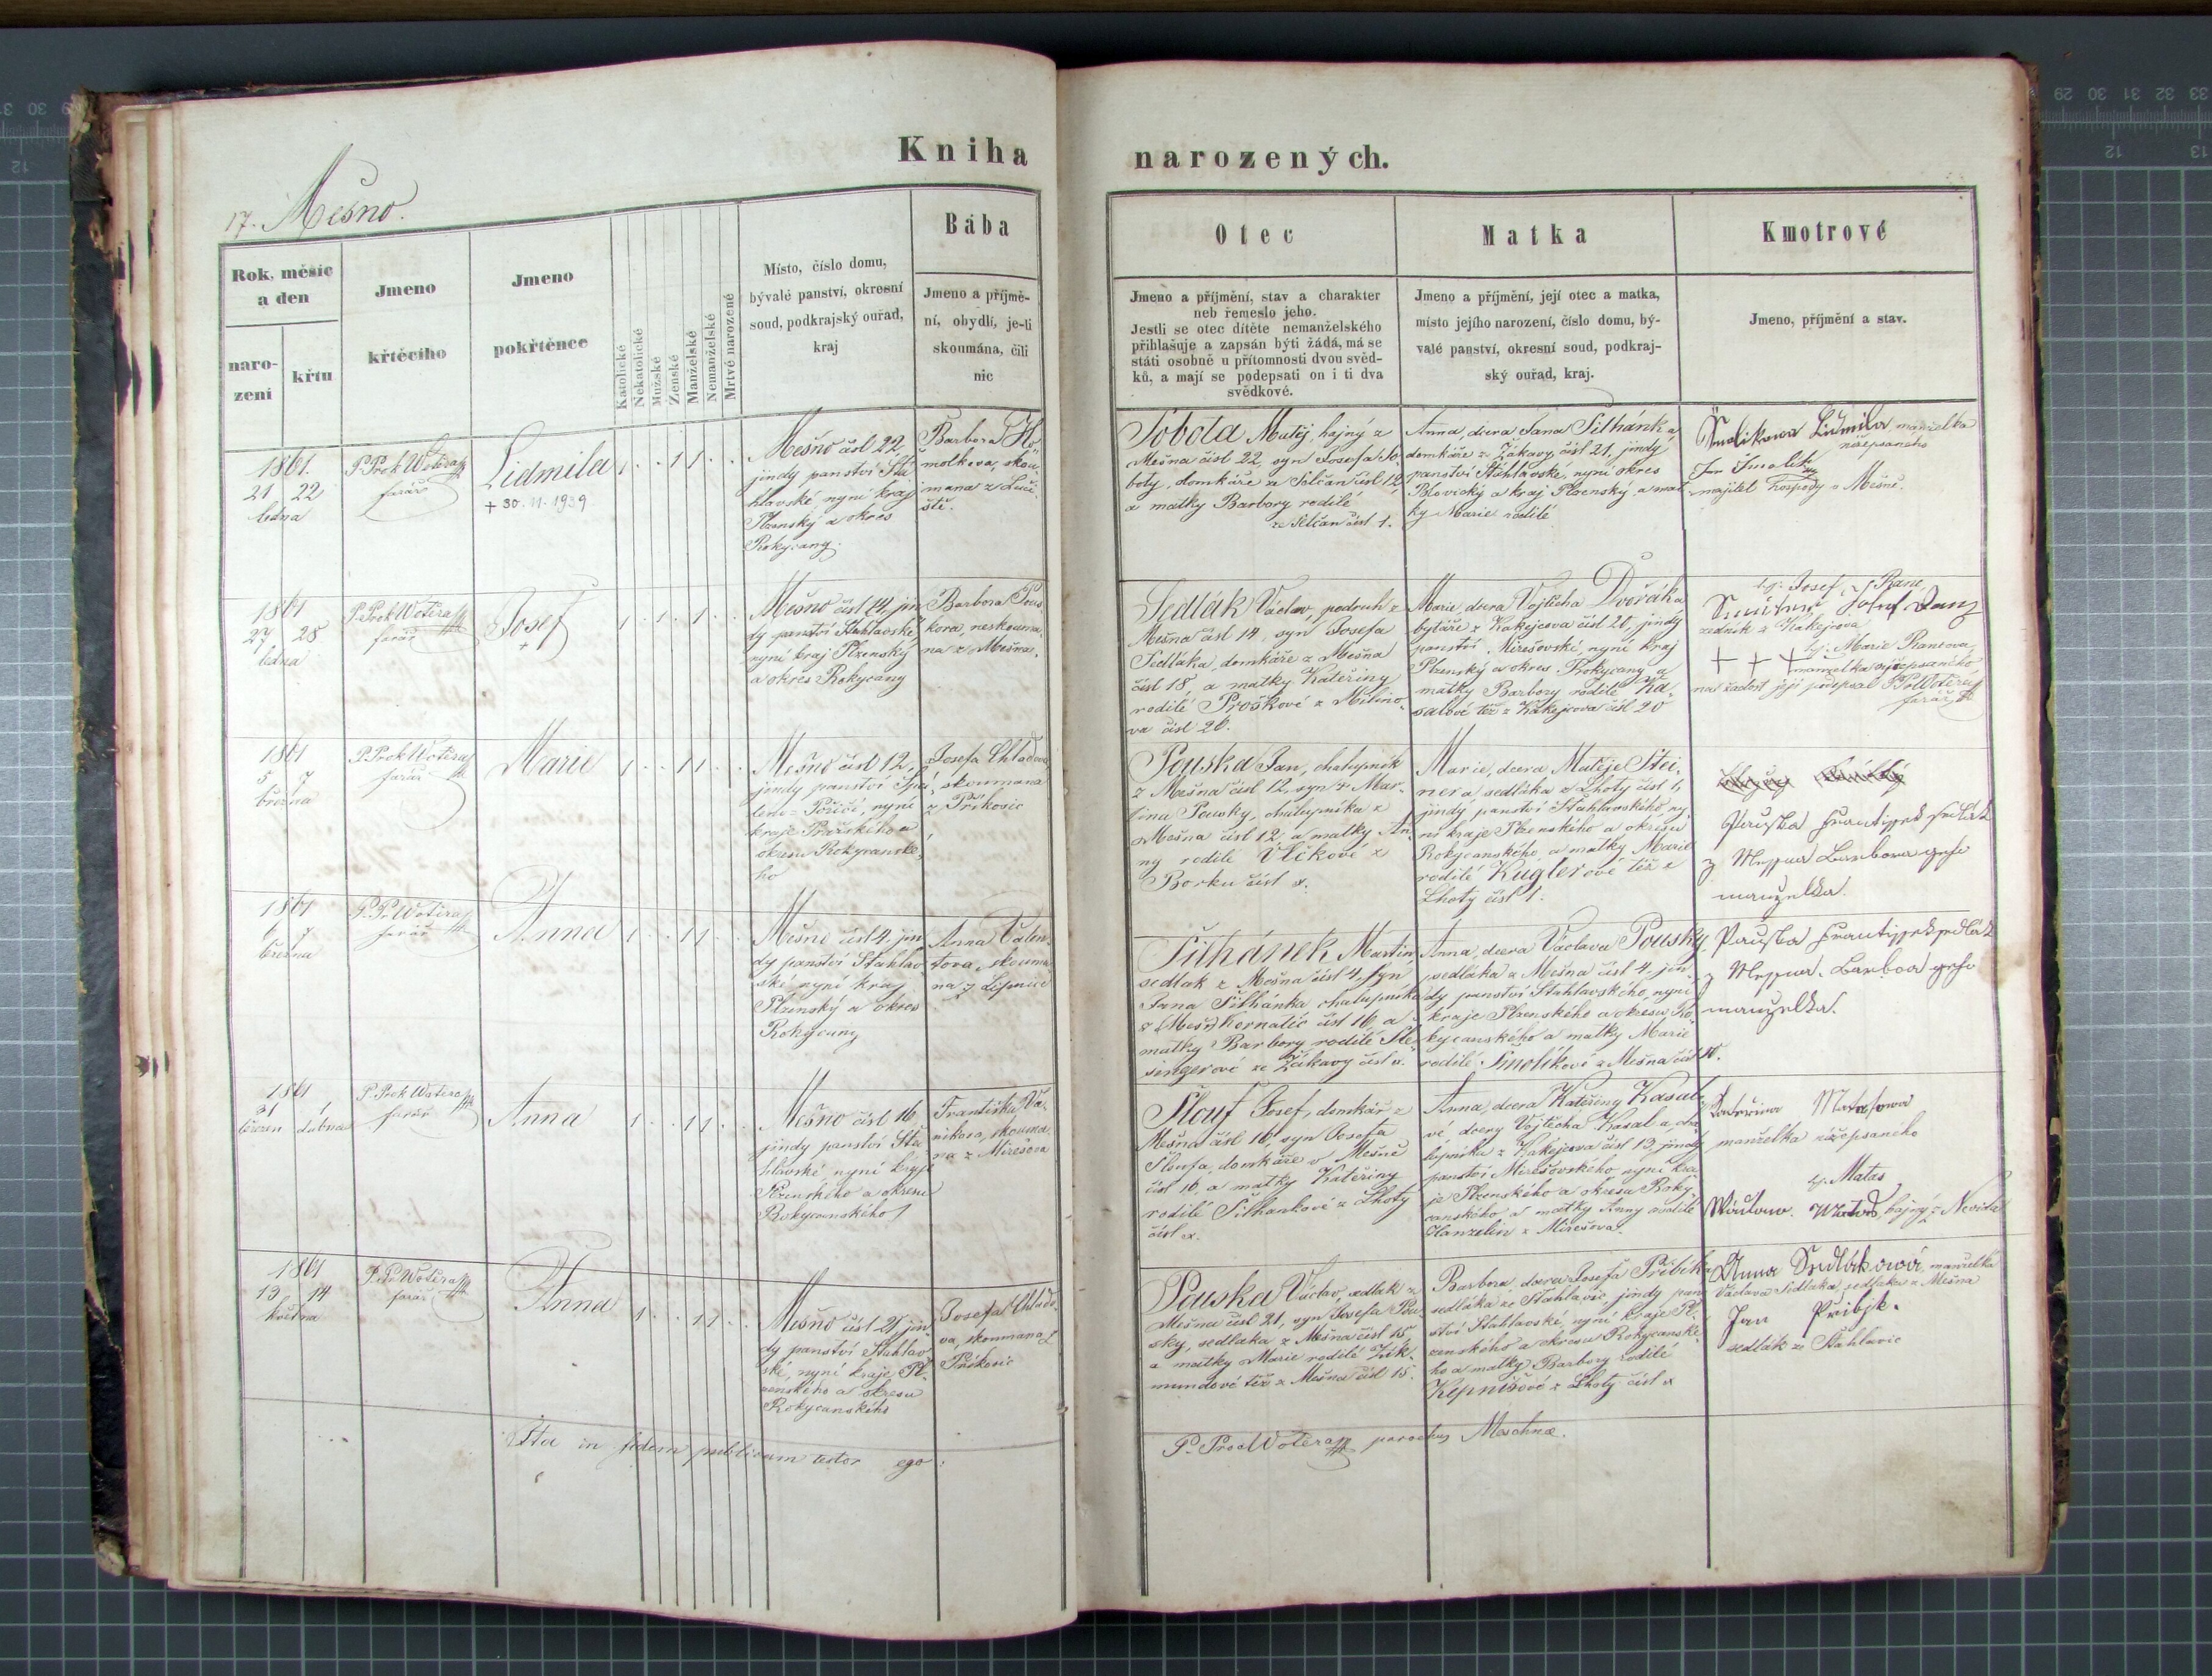 Kniha narozených.
17. Mešno.
Rok, měsíc
a den
naro-
zení
křtu
Jmeno
křtěcího
Jmeno
pokřtěnce
Katolické
Nekatolické
Mužské
Ženské
Manželské
Nemanželské
Mrtvě narozené
Místo, číslo domu,
bývalé panství, okresní
soud, podkrajský ouřad,
kraj
Bába
Jmeno a příjmě-
ní, obydlí, je-li
skoumána, čili
nic
Otec
Jmeno a příjmění, stav a charakter
neb řemeslo jeho.
Jestli se otec dítěte nemanželského
přihlašuje a zapsán býti žádá, má se
státi osobně u přítomnosti dvou svěd-
ků, a mají se podepsati on i ti dva
svědkové.
Matka
Jmeno a příjmění, její otec a matka,
místo jejího narození, číslo domu, bý-
valé panství, okresní soud, podkraj-
ský ouřad, kraj.
Kmotrové
Jmeno, příjmění a stav.
1861.
21 22
ledna
P. Prok Wotěra
farář
Lidmila
+ 30. 11. 1939
1 . . 1 1 . .
Mešno čísl 22,
jindy panství Šťa-
hlavské nyní kraj
Plzenský a okres
Rokycany.
Barbora
molkova, skou-
mana z
Sobota Matěj, hajný z
Mešna čísl 22, syn Josefa So-
boty, domkáře ze čísl 12,
a matky Barbory rodilé
čísl 1.
Anna, dcera Jana Šilhánka
domkáře z Žákavy čísl 21, jindy
panství Šťáhlavské, nyní okres
Blovický a kraj Plzenský a mat-
ky Marie rodilé
Lidmila manželka
nížepsaného
Jan Smolik
majitel hospody v Mešně.
1861
27 28
ledna
P. Prok Wotěra
farář
Josef
+
1 . 1 . 1 . .
Mešno čísl 14, jin-
dy panství Šťahlavské,
nyní kraj Plzenský
a okres Rokycany
Barbora Pous-
kova, neskouma-
na z Mešna.
Sedlák Václav, podruh z
Mešna čísl 14, syn Josefa
Sedláka, domkáře z Mešna
čísl 18, a matky Kateřiny
rodilé Proškové z Milíno-
va čísl 26.
Marie, dcera Vojtěcha Dvořáka
bytáře z Kakejcova čísl 20, jindy
panství Mirešovské, nyní kraj
Plzenský a okres Rokycany a
matky Barbory rodilé Ka-
salové též z Kakejcova čísl 20
Josef
zedník z Kakejcova
+ + +
Marie
manželka výšepsaného
na žádost její podepsal P. Pr. Wotěra
farář
1861
5 7
března
P. Prok Wotěra
farář
Marie
1 . . 1 1 . .
Mešno čísl 12,
jindy panství Spá-
leno-Poříčí, nyní
kraje Pražského a
okresu Rokycanské-
ho
Josefa Chladova
skoumana
z Příkosic
Pouska Jan, chalupník
z Mešna čísl 12, syn + Mar-
tina Pousky, chalupníka z
Mešna čísl 12, a matky An-
ny rodilé Vlčkové z
Borku čísl x.
Marie, dcera Matěje Stei-
nera sedláka z Lhoty čísl 1,
jindy panství Šťahlavského, ny-
ní kraje Plzenského a okresu
Rokycanského, a matky Marie
rodilé Kuglerové též z
Lhoty čísl 1.
Pauska Frantissek sedlák
z Messna Barbora geho
manzelka.
1861
6 7
března
P. Pr. Wotěra
farář
Anna
1 . . 1 1 . .
Mešno čísl 4, jin-
dy panství Šťahlav-
ské nyní kraj
Plzenský a okres
Rokycany
Anna Valen-
tova, skouma-
na z Lipnice
Šilhánek Martin,
sedlak z Mešna čísl 4, syn
Jana Šilhánka chalupníka
z Kornatic čísl 16, a
matky Barbory rodilé Šle-
singerové ze Žákavy čísl x.
Anna, dcera Václava Pousky
sedláka z Mešna čísl 4, jin-
dy panství Šťahlavského, nyní
kraje Plzenského a okresu Ro-
kycanského a matky Marie
rodilé Smolíkové z Mešna čísl 15.
Pauska Frantissek sedlák
z Messna. Barbora geho
manzelka.
1861
31 1
březen dubna
P. Prok Wotěra
farář
Anna
1 . . 1 1 . .
Mešno čísl 16
jindy panství Šťa-
hlavské, nyní kraje
Plzenského a okresu
Rokycanského
Františka Va-
nikova, skouma-
na z Mirešova
Slouf Josef, domkář z
Mešna čísl 16, syn Josefa
Sloufa, domkáře v Mešně
čísl 16, a matky Kateřiny
rodilé Šilhankové z Lhoty
čísl x.
Anna, dcera Kateřiny Kasalo-
vé dcery Vojtěcha Kasala, cha-
lupníka z Kakejcova čísl 13, jindy
panství Mirešovského nyní kra-
je Plzenského a okresu Roky-
canského a matky Anny rodilé
Hanzelin z Mirešova.
Kateřina Matasowa
manželka nížepsaného
Matas
hajný z Nevida
1861
13 14
května
P. Pr. Wotěra
farář
Anna
1 . . 1 1 . .
Mešno čísl 21, jin-
dy panství Šťahlav-
ské, nyní kraje Pl-
zenského a okresu
Rokycanského
Josefa Chlado-
vá, skoumana z
Příkosic
Pouska Václav, sedlák z
Mešna čísl 21, syn Josefa Pou-
sky, sedláka z Mešna čísl 15,
a matky Marie rodilé Zik-
mundové též z Mešna čísl 15.
Barbora, dcera Josefa Přibíka
sedláka ze Šťahlavic jindy pan-
ství Šťahlavské, nyní kraje Pl-
zenského a okresu Rokycanské-
ho a matky Barbory rodilé
z Lhoty čísl x
Anna Sedlákowá manželka
Václava Sedláka, sedláka z Mešna
Jan Přibjk.
sedlák ze Šťahlavic
Ita in fidem publicam testor ego: P. Proc Wotěra parochus Meschnae.